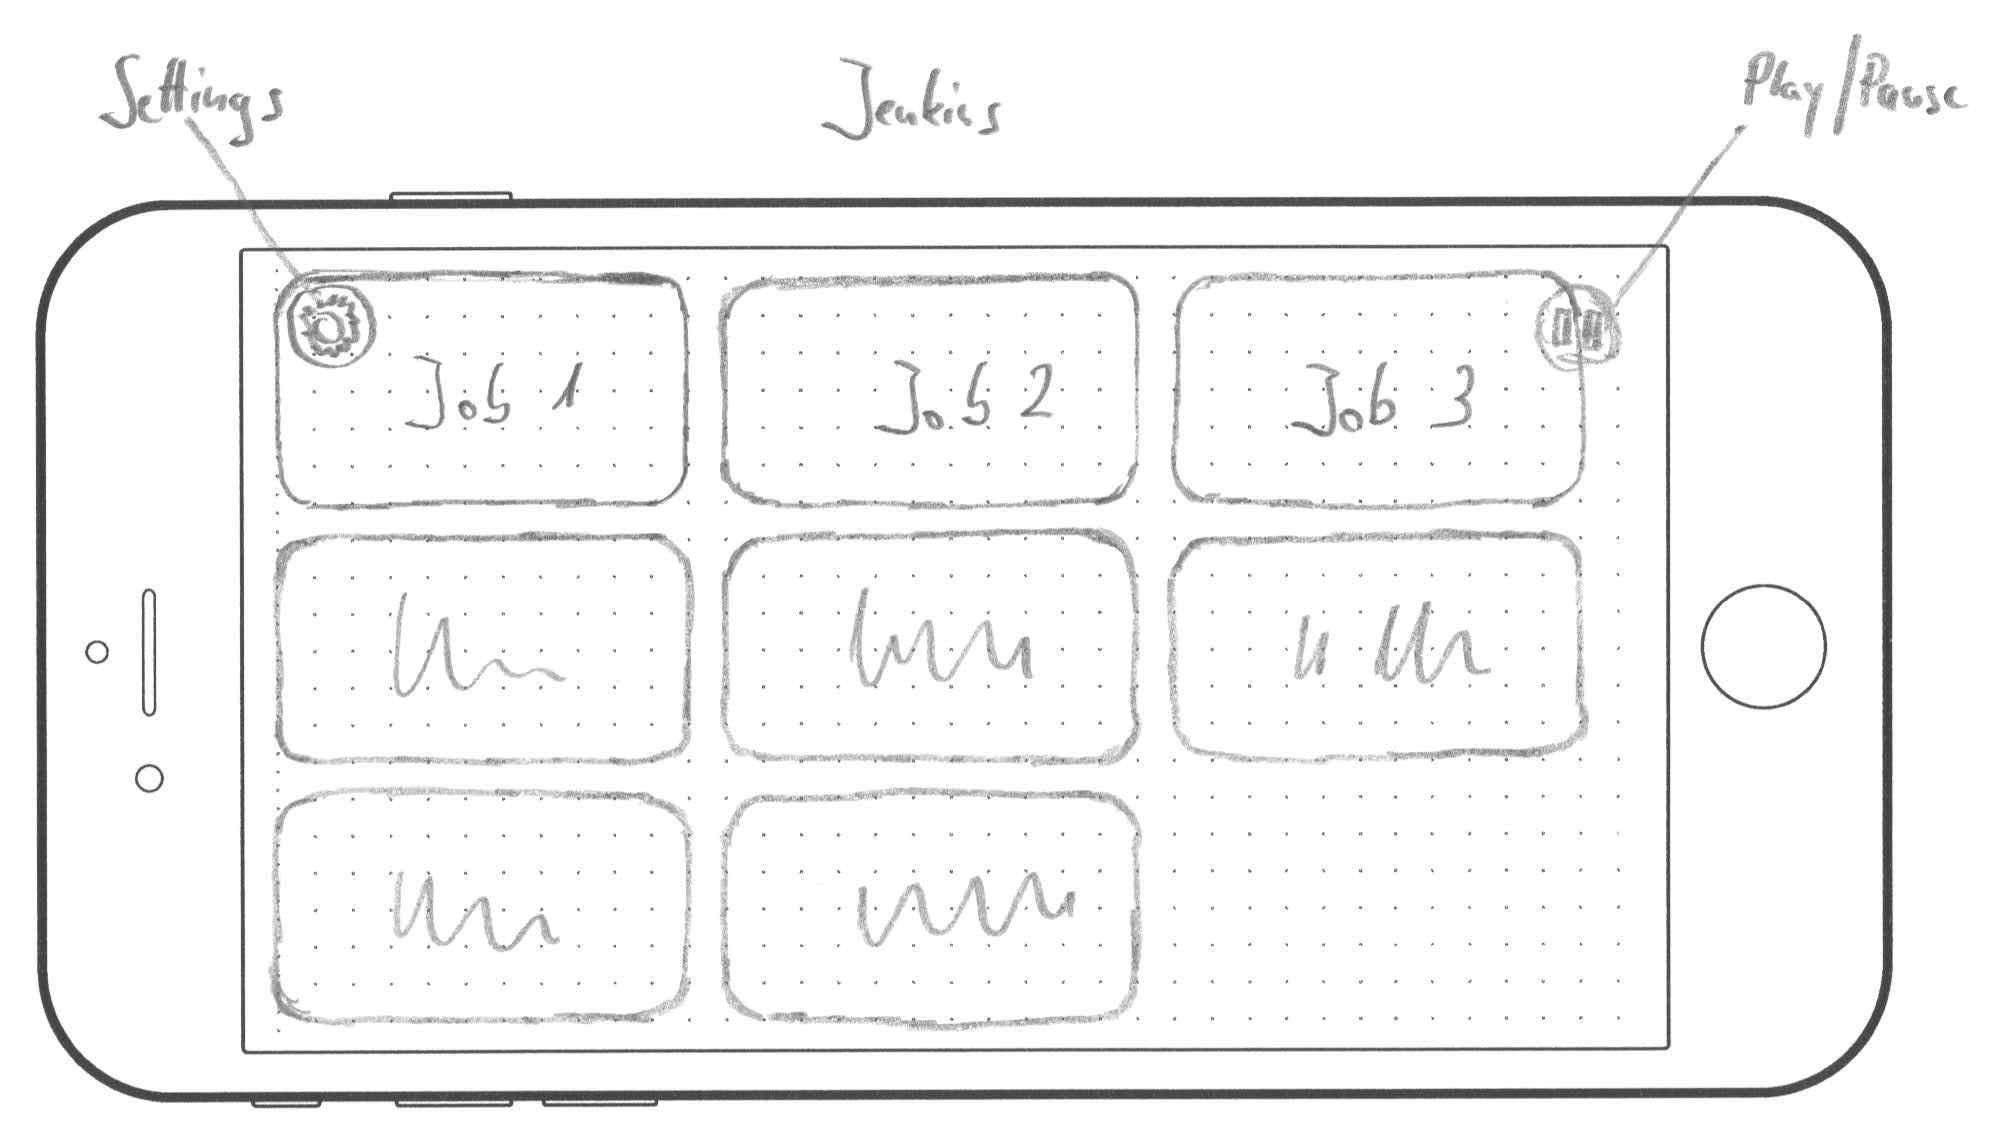 Settings
Jenkins
Play/Pause
Job 1
Job 2
Job 3